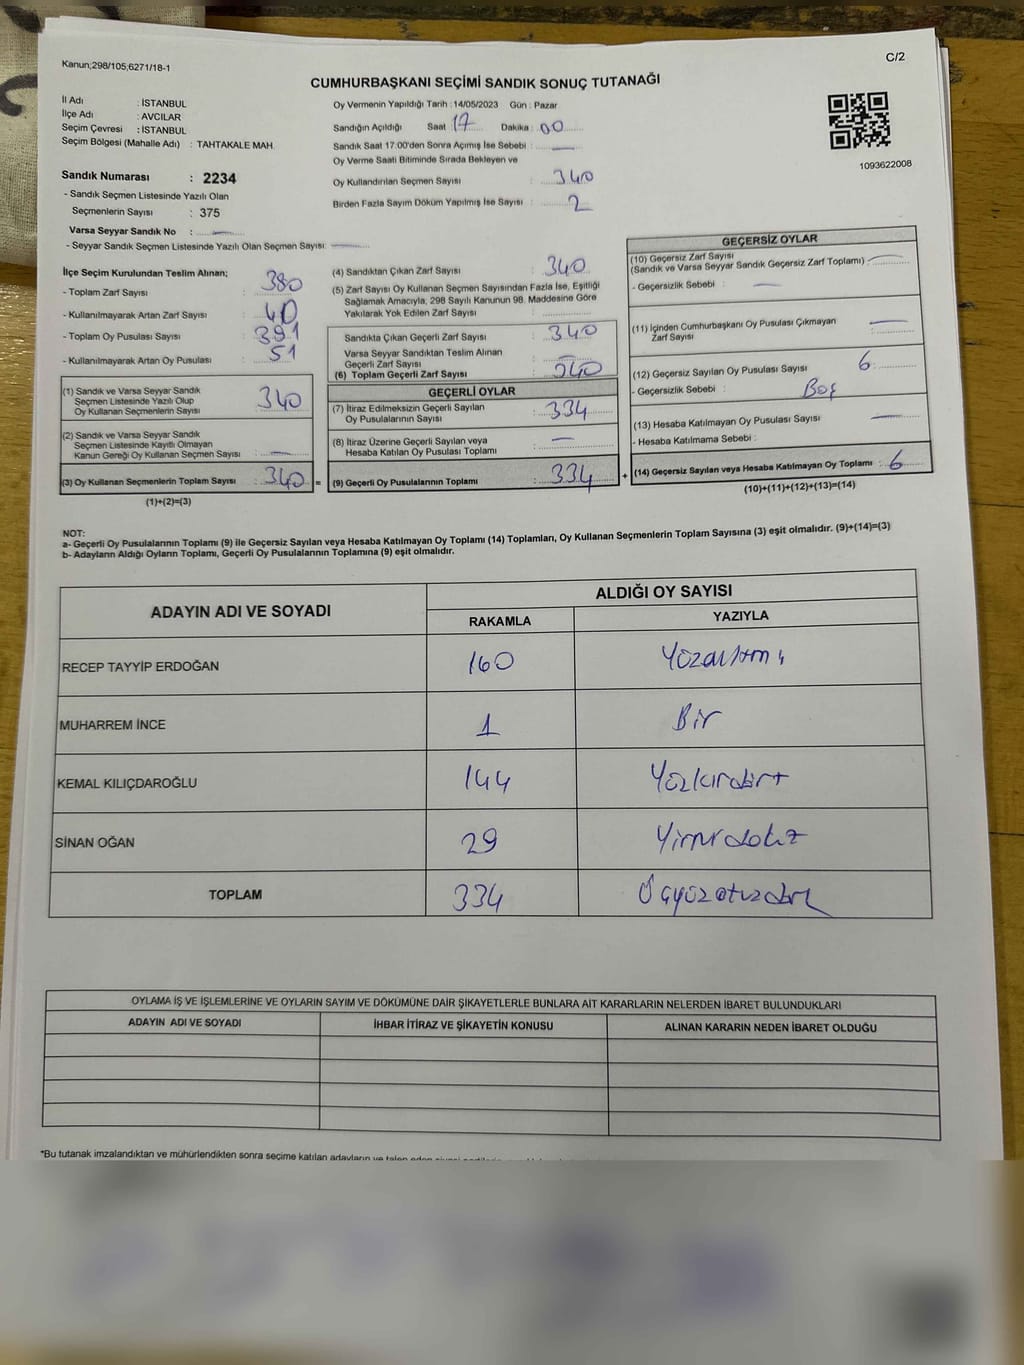 Kanun;298/105,6271/18-1
C/2
CUMHURBAŞKANI SEÇİMİ SANDIK SONUÇ TUTANAĞI
İl Adı : İSTANBUL
İlçe Adı : AVCILAR
Seçim Çevresi : İSTANBUL
Seçim Bölgesi (Mahalle Adı) : TAHTAKALE MAH.
Sandık Numarası : 2234
- Sandık Seçmen Listesinde Yazılı Olan
Seçmenlerin Sayısı : 375
Varsa Seyyar Sandık No : —
- Seyyar Sandık Seçmen Listesinde Yazılı Olan Seçmen Sayısı: —
Oy Vermenin Yapıldığı Tarih : 14/05/2023 Gün : Pazar
Sandığın Açıldığı Saat 17 Dakika : 00
Sandık Saat 17:00'den Sonra Açımış İse Sebebi : —
Oy Verme Saati Bitiminde Sırada Bekleyen ve
Oy Kullandırılan Seçmen Sayısı : 340
Birden Fazla Sayım Döküm Yapılmış İse Sayısı : 2
1093622008
İlçe Seçim Kurulundan Teslim Alınan;
- Toplam Zarf Sayısı : 380
- Kullanılmayarak Artan Zarf Sayısı : 40
- Toplam Oy Pusulası Sayısı : 391
- Kullanılmayarak Artan Oy Pusulası : 51
(1) Sandık ve Varsa Seyyar Sandık
Seçmen Listesinde Yazılı Olup
Oy Kullanan Seçmenlerin Sayısı : 340
(2) Sandık ve Varsa Seyyar Sandık
Seçmen Listesinde Kayıtlı Olmayan
Kanun Gereği Oy Kullanan Seçmen Sayısı : —
(3) Oy Kullanan Seçmenlerin Toplam Sayısı : 340 =
(1)+(2)=(3)
(4) Sandıktan Çıkan Zarf Sayısı : 340
(5) Zarf Sayısı Oy Kullanan Seçmen Sayısından Fazla İse, Eşitliği
Sağlamak Amacıyla, 298 Sayılı Kanunun 98. Maddesine Göre
Yakılarak Yok Edilen Zarf Sayısı :
Sandıkta Çıkan Geçerli Zarf Sayısı : 340
Varsa Seyyar Sandıktan Teslim Alınan
Geçerli Zarf Sayısı : —
(6) Toplam Geçerli Zarf Sayısı : 340
GEÇERLİ OYLAR
(7) İtiraz Edilmeksizin Geçerli Sayılan
Oy Pusulalarının Sayısı : 334
(8) İtiraz Üzerine Geçerli Sayılan veya
Hesaba Katılan Oy Pusulası Toplamı : —
(9) Geçerli Oy Pusulalarının Toplamı : 334 +
GEÇERSİZ OYLAR
(10) Geçersiz Zarf Sayısı
(Sandık ve Varsa Seyyar Sandık Geçersiz Zarf Toplamı) : —
- Geçersizlik Sebebi : —
(11) İçinden Cumhurbaşkanı Oy Pusulası Çıkmayan
Zarf Sayısı : —
(12) Geçersiz Sayılan Oy Pusulası Sayısı : 6
- Geçersizlik Sebebi : Boş
(13) Hesaba Katılmayan Oy Pusulası Sayısı : —
- Hesaba Katılmama Sebebi :
(14) Geçersiz Sayılan veya Hesaba Katılmayan Oy Toplamı : 6
(10)+(11)+(12)+(13)=(14)
NOT:
a- Geçerli Oy Pusulalarının Toplamı (9) ile Geçersiz Sayılan veya Hesaba Katılmayan Oy Toplamı (14) Toplamları, Oy Kullanan Seçmenlerin Toplam Sayısına (3) eşit olmalıdır. (9)+(14)=(3)
b- Adayların Aldığı Oyların Toplamı, Geçerli Oy Pusulalarının Toplamına (9) eşit olmalıdır.
ADAYIN ADI VE SOYADI
ALDIĞI OY SAYISI
RAKAMLA YAZIYLA
RECEP TAYYİP ERDOĞAN 160 Yüzaltmı
MUHARREM İNCE 1 Bir
KEMAL KILIÇDAROĞLU 144 Yüzkırdört
SİNAN OĞAN 29 Yirmidokuz
TOPLAM 334 Üçyüzotuzdört
OYLAMA İŞ VE İŞLEMLERİNE VE OYLARIN SAYIM VE DÖKÜMÜNE DAİR ŞİKAYETLERLE BUNLARA AİT KARARLARIN NELERDEN İBARET BULUNDUKLARI
ADAYIN ADI VE SOYADI İHBAR İTİRAZ VE ŞİKAYETİN KONUSU ALINAN KARARIN NEDEN İBARET OLDUĞU
*Bu tutanak imzalandıktan ve mühürlendikten sonra seçime katılan adayların ve talep eden siyasi